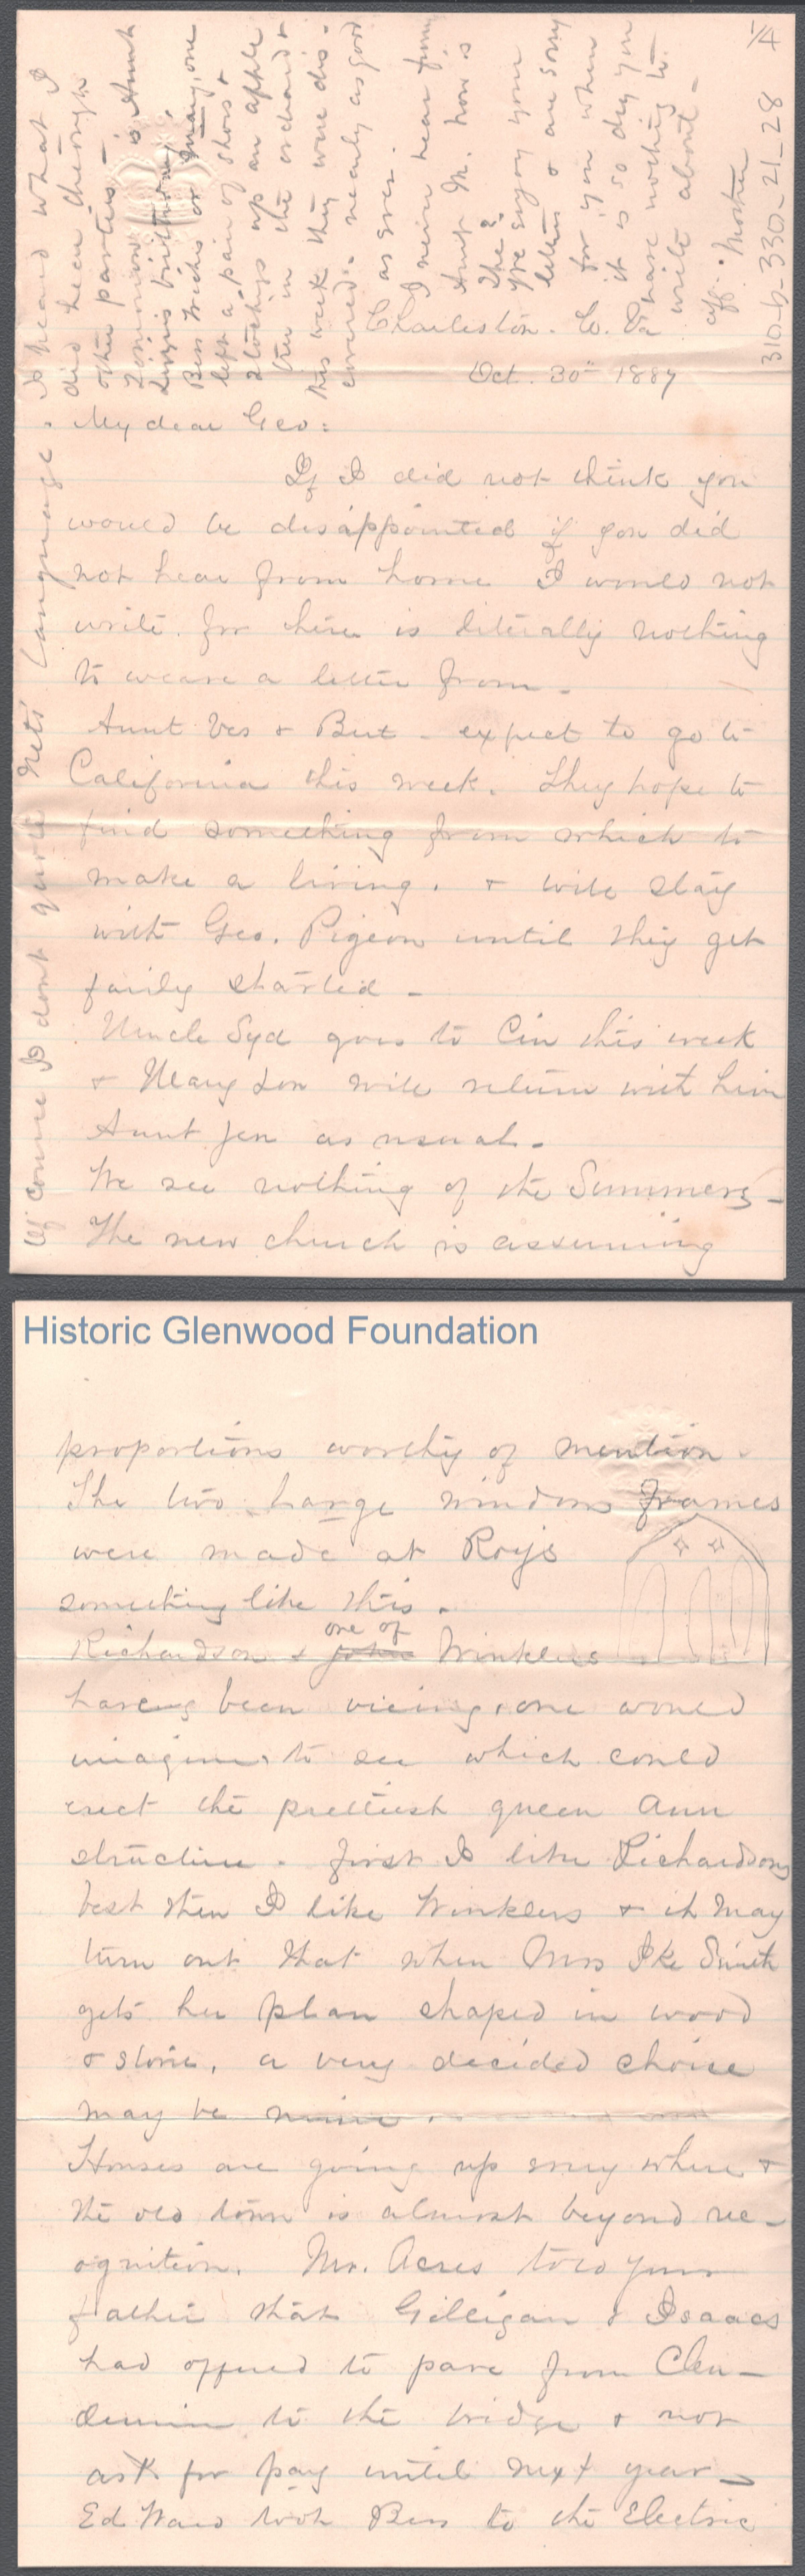 1/4
310-6-330-21-28
Charleston. W. Va
Oct. 30th 1887
My dear Geo:
If I did not think you
would be disappointed if you did
not hear from home I would not
write. for there is literally nothing
to weave a letter from.
Aunt Ves & But - expect to go to
California this week. They hope to
find something from which to
make a living. & will stay
with Geo. Pigeon until they get
fairly started -
Uncle Syd goes to Cin this week
& Mary Lon will return with him
Aunt Jen as usual.
We see nothing of the Summers -
The new church is assuming
Of course I dont quote Nets' language.
I heard what I
did hear through
other parties -
Tomorrow is Aunt
Lizzie's birthday.
Bess Wicks or Mary, one
left a pair of shoes &
stockings up an apple
tree in the orchard &
this week they were dis-
covered. nearly as good
as ever.
I never hear from
Aunt M. how is
she?
We enjoy your
letters & are sorry
for you when
it is so dry you
have nothing to
write about -
Aff. Mother
Historic Glenwood Foundation
proportions worthy of mention.
The two large window frames
were made at Roy's
something like this.
one of
Richardson & John Winklers
having been vieing, one would
imagine, to see which could
erect the prettiest queen Ann
structure. first I like Richardsons
best then I like Winklers & it may
turn out that when Mrs Ike Smith
gets her plan shaped in wood
& stone, a very decided choice
may be mine.
Houses are going up every where &
the old town is almost beyond rec-
ognition. Mr. Acres told your
father that Gilligan & Isaacs
had offered to pave from Clen-
dennin to the bridge & not
ask for pay until next year -
Ed Ward took Bess to the Electric